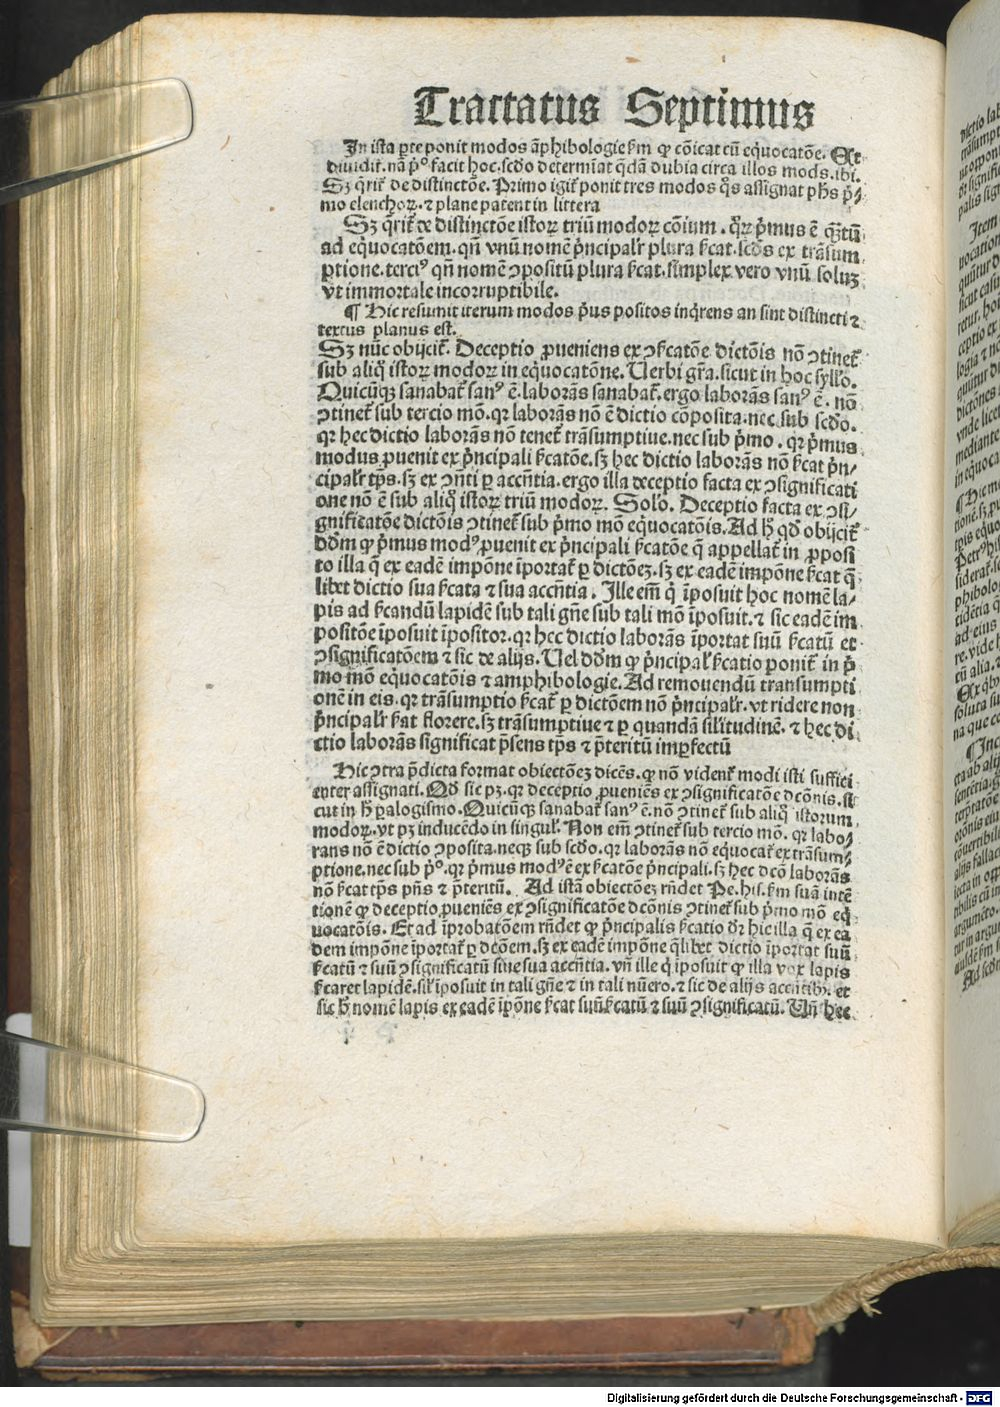 Tractatus Septimus
In ista ꝑte ponit modos āphibologie ẜm ꝙ cōicat cū equocatōe. Et
diuidit̄. nā pͦ facit hoc. scd̓o determīat q̄dā dubia circa illos mods. ibi.
Sꝫ q̄rit̄ de distinctōe. Primo igit̄ ponit tres modos qͦs assignat phs p̄/
mo elenchoꝝ. ⁊ plane patent in littera
Sꝫ q̄rit̄ de distinctōe istoꝝ triū modoꝝ cōium. qꝛ p̄mus ē q̄ntū
ad equocatōem. qn̄ vnū nomē p̄ncipalr̄ plura ẜcat. scd̓s ex trāsum
ptione. terciꝰ qn̄ nomē ꝯpositū plura ẜcat. simplex vero vnū soluꝫ
vt immortale incorruptibile.
¶ Hic resumit iterum modos p̄us positos inq̄rens an sint distincti ⁊
textus planus est.
Sꝫ nūc obijcit̄. Deceptio ꝓueniens ex ꝯẜcatōe dictōis nō ꝯtinet̄
sub aliqͦ istoꝝ modoꝝ in equocatōne. Uerbi gr̄a. sicut in hoc syllo.
Quicūqꝫ sanabat̄ sanꝰ ē. laborās sanabat̄. ergo laborās sanꝰ ē. nō
ꝯtinet̄ sub tercio mō. qꝛ laborās nō ē dictio cōposita. nec sub scd̓o.
qꝛ hec dictio laborās nō tenet̄ trāsumptiue. nec sub p̄mo. qꝛ p̄mus
modus ꝓuenit ex p̄ncipali ẜcatōe. sꝫ hec dictio laborās nō ẜcat p̄n/
cipalr̄ tp̄s. sꝫ ex ꝯn̄ti ꝑ accn̄tia. ergo illa deceptio facta ex ꝯsignificati
one nō ē sub aliqͦ istoꝝ triū modoꝝ. Solo. Deceptio facta ex ꝯsi/
gnificatōe dictōis ꝯtinet̄ sub p̄mo mō equocatōis. Ad h̄ qd̓ obijcit̄
dd̓m ꝙ p̄mus modꝰ ꝓuenit ex p̄ncipali ẜcatōe q̄ appellat̄ in ꝓposi
to illa q̄ ex eadē impōne īportat̄ ꝑ dictōeꝫ. sꝫ ex eadē impōne ẜcat q̄
libet dictio sua ẜcata ⁊ sua accn̄tia. Ille em̄ qͥ īposuit hoc nomē la/
pis ad ẜcandū lapidē sub tali gn̄e sub tali mō īposuit. ⁊ sic eadē im
positōe īposuit īpositor. qꝛ hec dictio laborās īportat suū ẜcatū et
ꝯsignificatōem ⁊ sic de alijs. Uel dd̓m ꝙ p̄ncipal̄ ẜcatio ponit̄ in p̄
mo mō equocatōis ⁊ amphibologie. Ad remouendū transumpti
onē in eis. qꝛ trāsumptio ẜcat̄ ꝑ dictōem nō p̄ncipalr̄. vt ridere non
p̄ncipalr̄ ẜat florere. sꝫ trāsumptiue ⁊ ꝑ quandā sil̓itudinē. ⁊ hec di
ctio laborās significat p̄sens tp̄s ⁊ p̄teritū imꝑfectū
Hic ꝯtra p̄dicta format obiectōeꝫ dicēs. ꝙ nō vident̄ modi isti suffici
enter assignati. Qd̓ sic pꝫ. qꝛ deceptio ꝓueniēs ex ꝯsignificatōe dcōnis. si
cut in h̄ ꝑalogismo. Quicūqꝫ sanabat̄ sanꝰ ē. nō ꝯtinet̄ sub aliqͦ istorum
modoꝝ. vt pꝫ inducēdo in singul̓. Non em̄ ꝯtinet̄ sub tercio mō. qꝛ labo/
rans nō ē dictio ꝯposita. neqꝫ sub scd̓o. qꝛ laborās nō equocat̄ ex trāsum/
ptione. nec sub pͦ. qꝛ p̄mus modꝰ ē ex ẜcatōe p̄ncipali. sꝫ hec dcō laborās
nō ẜcat tp̄s pn̄s ⁊ p̄teritū. Ad istā obiectōeꝫ rn̄det Pe. his. ẜm suā intē
tionē ꝙ deceptio ꝓueniēs ex ꝯsignificatōe dcōnis ꝯtinet̄ sub p̄mo mō eq̄
uocatōis. Et ad īprobatōem rn̄det ꝙ p̄ncipalis ẜcatio dr̄ hic illa q̄ ex ea
dem impōne īportat̄ ꝑ dcōem. sꝫ ex eadē impōne q̄libet dictio īportat suū
ẜcatū ⁊ suū ꝯsignificatū siue sua accn̄tia. vn̄ ille qͥ īposuit ꝙ illa vox lapis
ẜcaret lapidē. sil̓ īposuit in tali gn̄e ⁊ in tali nūero. ⁊ sic de alijs accn̄tibꝰ. et
sic h̄ nomē lapis ex eadē īpōne ẜcat suū ẜcatū ⁊ suū ꝯsignificatū. Un̄ hec
Digitalisierung gefördert durch die Deutsche Forschungsgemeinschaft - DFG